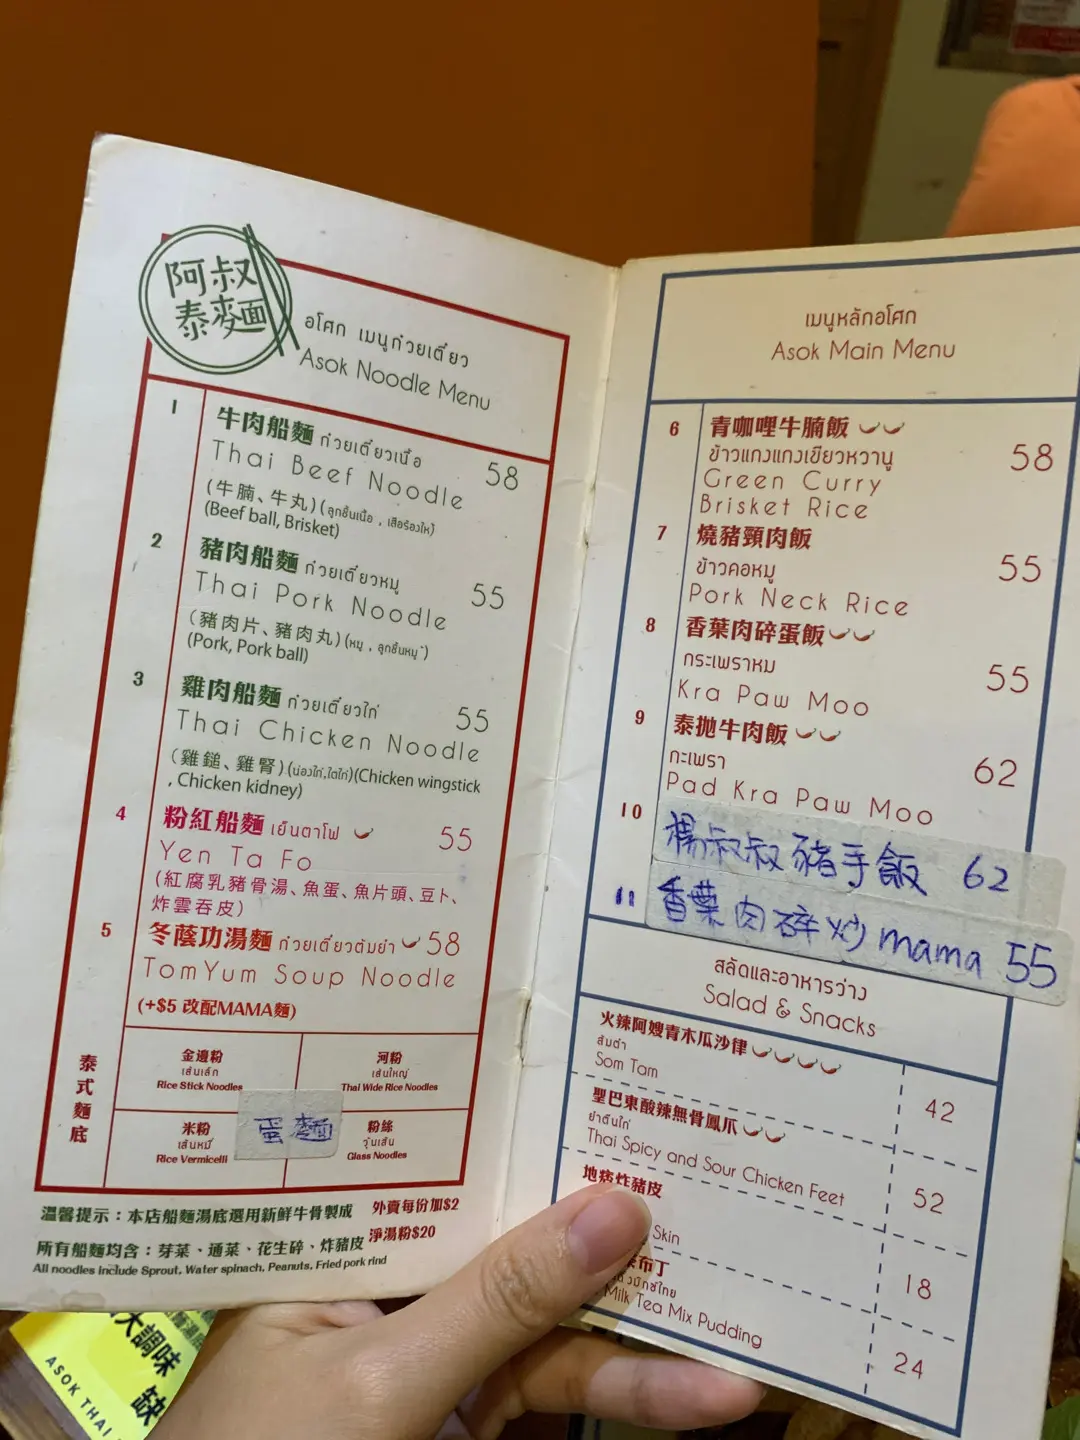 阿叔
泰麵
อโศก เมนูก๋วยเตี๋ยว
Asok Noodle Menu
1
牛肉船麵 ก๋วยเตี๋ยวเนื้อ
58
Thai Beef Noodle
(牛腩、牛丸) (ลูกชิ้นเนื้อ , เสือร้องไห้)
(Beef ball, Brisket)
2
豬肉船麵 ก๋วยเตี๋ยวหมู
55
Thai Pork Noodle
(豬肉片、豬肉丸) (หมู , ลูกชิ้นหมู)
(Pork, Pork ball)
3
雞肉船麵 ก๋วยเตี๋ยวไก่
55
Thai Chicken Noodle
(雞鎚、雞腎) (น่องไก่,ไตไก่) (Chicken wingstick
, Chicken kidney)
4
粉紅船麵 เย็นตาโฟ
55
Yen Ta Fo
(紅腐乳豬骨湯、魚蛋、魚片頭、豆卜、
炸雲吞皮)
5
冬蔭功湯麵 ก๋วยเตี๋ยวต้มยำ 58
TomYum Soup Noodle
(+$5 改配MAMA麵)
泰式麵底
金邊粉
เส้นเล็ก
Rice Stick Noodles
河粉
เส้นใหญ่
Thai Wide Rice Noodles
米粉
เส้นหมี่
Rice Vermicelli
蛋麵
粉絲
วุ้นเส้น
Glass Noodles
溫馨提示：本店船麵湯底選用新鮮牛骨製成
外賣每份加$2
所有船麵均含：芽菜、通菜、花生碎、炸豬皮
淨湯粉$20
All noodles include Sprout, Water spinach, Peanuts, Fried pork rind
เมนูหลักอโศก
Asok Main Menu
6
青咖哩牛腩飯
58
ข้าวแกงแกงเขียวหวานู
Green Curry
Brisket Rice
7
燒豬頸肉飯
55
ข้าวคอหมู
Pork Neck Rice
8
香葉肉碎蛋飯
55
กระเพราหม
Kra Paw Moo
9
泰拋牛肉飯
62
กะเพรา
Pad Kra Paw Moo
10
楊叔叔豬手飯 62
11
香葉肉碎炒mama 55
สลัดและอาหารว่าง
Salad & Snacks
火辣阿嫂青木瓜沙律
ส้มตำ
Som Tam
42
聖巴東酸辣無骨鳳爪
ยำตีนไก่
Thai Spicy and Sour Chicken Feet
52
地痞炸豬皮
Skin
18
布丁
Milk Tea Mix Pudding
24
大調味
缺
ASOK THAI